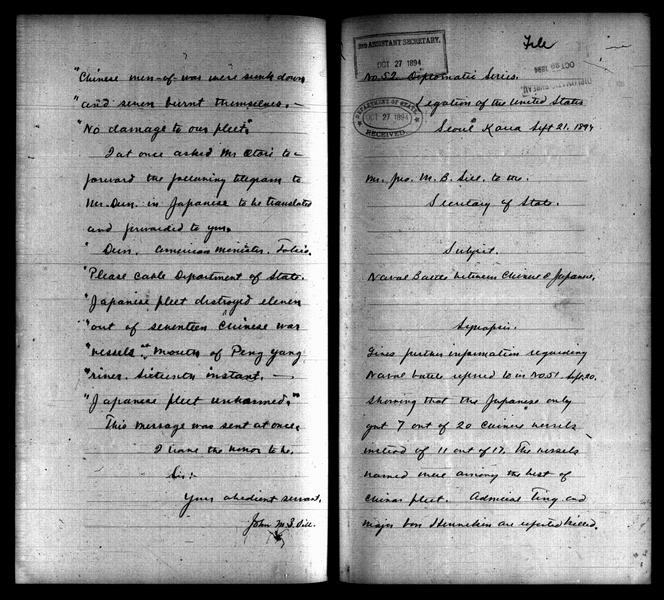 "Chinese men-of-war were sunk down
"and seven burnt themselves. —
"No damage to our fleet."
I at once asked Mr Otori to
forward the following telegram to
Mr. Dun. in Japanese to be translated
and forwarded to you.
"Dun. American Minister. Tokio.
"Please cable Department of State.
"Japanese fleet destroyed eleven
"out of seventeen Chinese war
"vessels at mouth of Ping yang
"river sixteenth instant. —
"Japanese fleet unharmed."
This message was sent at once.
I have the honor to be,
Sir:
Your obedient servant,
John M. B. Sill.
File
3RD ASSISTANT SECRETARY.
OCT 27 1894
OCT 29 1894
DIPLOMATIC BUREAU
No. 52. Diplomatic Series.
DEPARTMENT OF STATE
OCT 27 1894
RECEIVED.
Legation of the United States
Seoul Korea Sept 21. 1894
Mr. Jno. M. B. Sill. to the
Secretary of State.
Subject.
Naval Battle between Chinese & Japanese.
Synopsis.
Gives further information regarding
Naval battle referred to in No. 51. Sept. 20.
showing that the Japanese only
got 7 out of 20 Chinese vessels
instead of 11 out of 17. The vessels
named were among the best of
Chinas fleet. Admiral Ting and
Major Von Hanneken are reported killed.